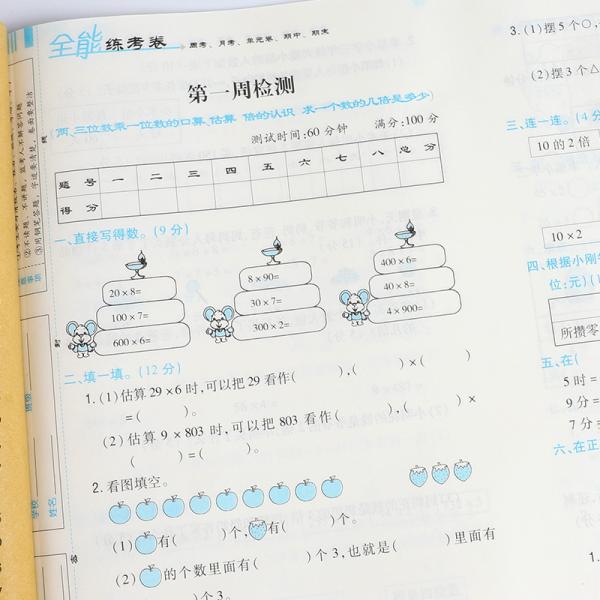 全能练考卷 周考、月考、单元卷、期中、期末
第一周检测
(两、三位数乘一位数的口算、估算 倍的认识 求一个数的几倍是多少)
测试时间:60分钟 满分:100分
题号 一 二 三 四 五 六 七 八 总分
得分
一、直接写得数。(9分)
20×8=
100×7=
600×6=
8×90=
30×7=
300×2=
400×6=
40×8=
4×900=
二、填一填。(12分)
1.(1)估算29×6时,可以把29看作( ),( )×( )
=( )。
(2)估算9×803时,可以把803看作( ),( )×
( )=( )。
2.看图填空。
(1) 有( )个, 有( )个。
(2) 的个数里面有( )个3,也就是( )里面有
( )个3。
3.(1)摆5个○,
(2)摆3个△
三、连一连。(4分
10的2倍
10×2
四、根据小刚
位:元)(1
所攒零
五、在(
5时=
9分=
7分=
六、在正
1.
学校
班级
姓名
封